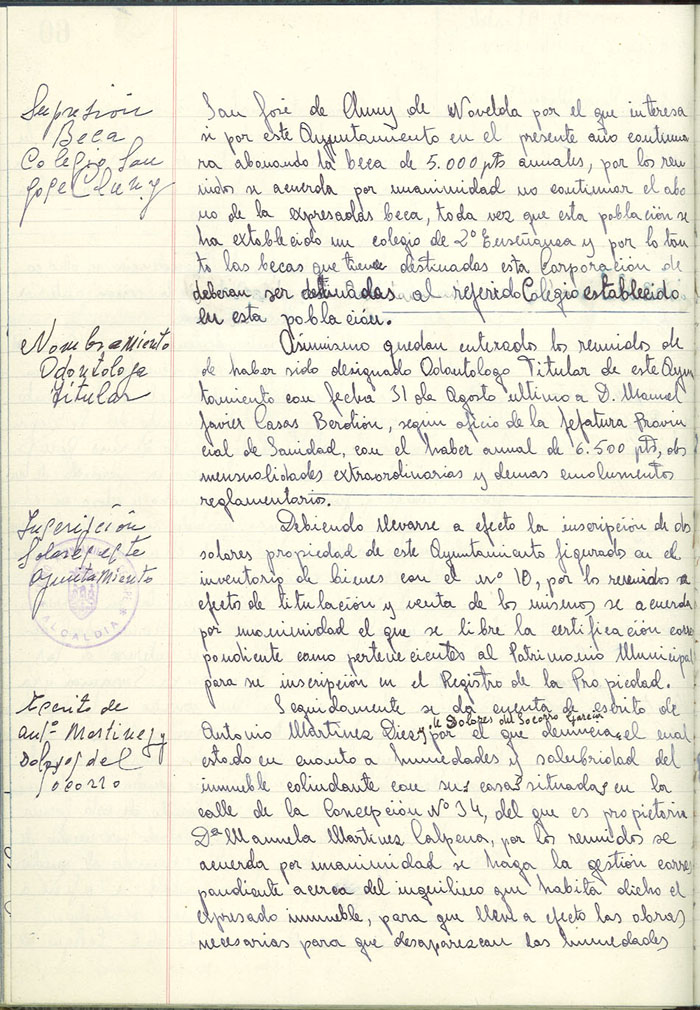 Supresión
Beca
Colegio San
José Cluny
San José de Cluny de Novelda por el que interesa
si por este Ayuntamiento en el presente año continua
ra abonando la beca de 5.000 pts anuales, por los reu
nidos se acuerda por unanimidad no continuar el abo
no de la expresadas beca, toda vez que esta población se
ha extoblecido un colegio de 2º Enseñanza y por lo tan
to las becas que tiene destinadas esta Corporación de
deberan ser destinadas al referido Colegio establecido
en esta población.
Nombramiento
Odontóloga
titular
Asimismo quedan enterados los reunidos de
de haber sido designado Odontologo Titular de este Ayun
tamiento con fecha 31 de Agosto ultimo a D. Manuel
Javier Casas Berdión, segun oficio de la Jefatura Provin
cial de Sanidad, con el haber anual de 6.500 pts, dos
mensualidades extraordinarias y demas emolumentos
reglamentarios.
Inscripción
Solares este
Ayuntamiento
ALCALDIA
Debiendo llevarse a efecto la inscripción de dos
solares propiedad de este Ayuntamiento figurados en el
inventario de bienes con el nº 10, por los reunidos a
efecto de titulación y venta de los mismos se acuerda
por unanimidad el que se libre la certificación corres
pondiente como pertenecientes al Patrimonio Municipal
para su inscripción en el Registro de la Propiedad.
Escrito de
Antº Martinez y
Dolores del
Socorro
Seguidamente se da cuenta de escrito de
Antonio Martinez Diez y de Dolores del Socorro García por el que denuncia el mal
estado en cuanto a humedades y salubridad del
inmueble colindante con sus casas situadas en la
calle de la Concepción Nº 34, del que es propietaria
Dª Manuela Martinez Calpena, por los reunidos se
acuerda por unanimidad se haga la gestión corres
pondiente acerca del inquilino que habita dicho el
expresado inmueble, para que lleve a efecto las obras
necesarias para que desaparezcan las humedades